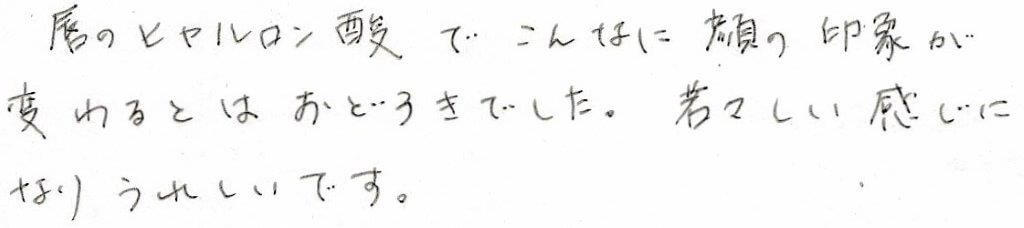 唇のヒヤルロン酸でこんなに顔の印象が
変わるとはおどろきでした。若々しい感じに
なりうれしいです。